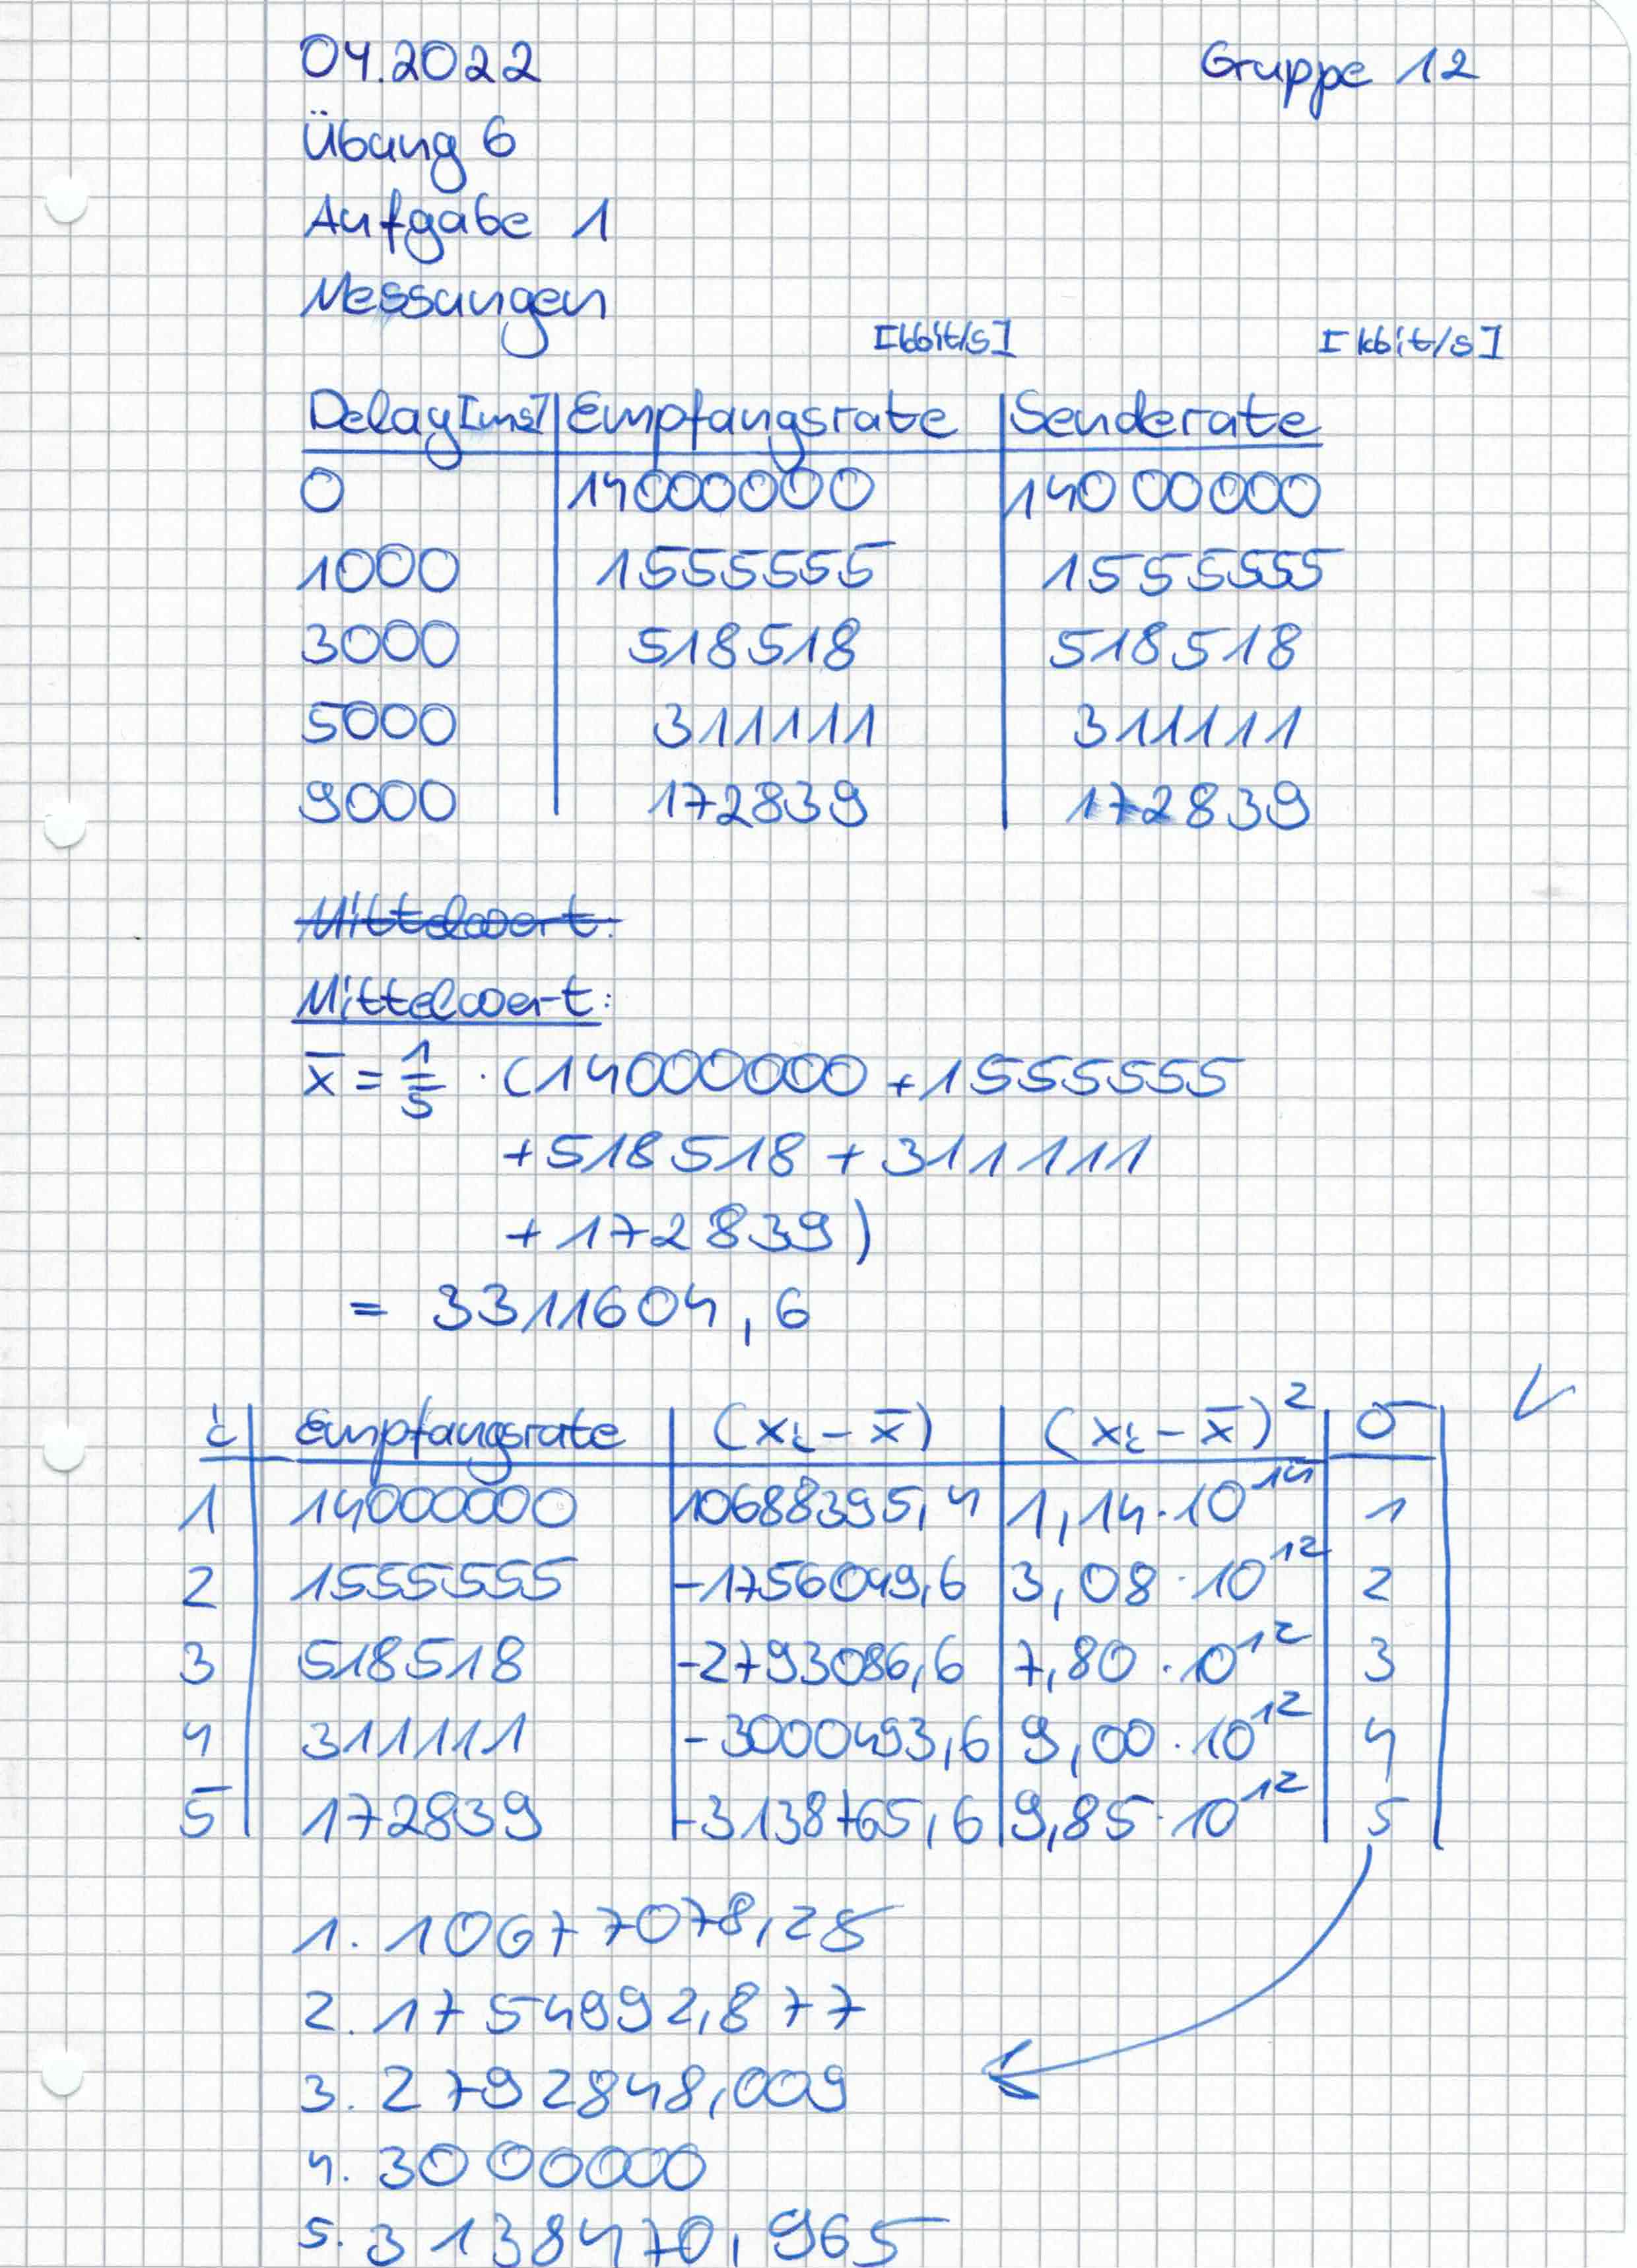 04.2022 Gruppe 12
Übung 6
Aufgabe 1
Messungen
[kbit/s] [kbit/s]
Delay[ms] Empfangsrate Senderate
0 14000000 14000000
1000 1555555 1555555
3000 518518 518518
5000 311111 311111
9000 172839 172839
Mittelwert:
Mittelwert:
x̄ = 1/5 · (14000000 + 1555555
+ 518518 + 311111
+ 172839)
= 3311604,6
i Empfangsrate (xᵢ - x̄) (xᵢ - x̄)² σ
1 14000000 10688395,4 1,14·10¹⁴ 1
2 1555555 -1756049,6 3,08·10¹² 2
3 518518 -2793086,6 7,80·10¹² 3
4 311111 -3000493,6 9,00·10¹² 4
5 172839 -3138765,6 9,85·10¹² 5
1. 10677078,25
2. 1754992,877
3. 2792848,009
4. 3000000
5. 3138470,965